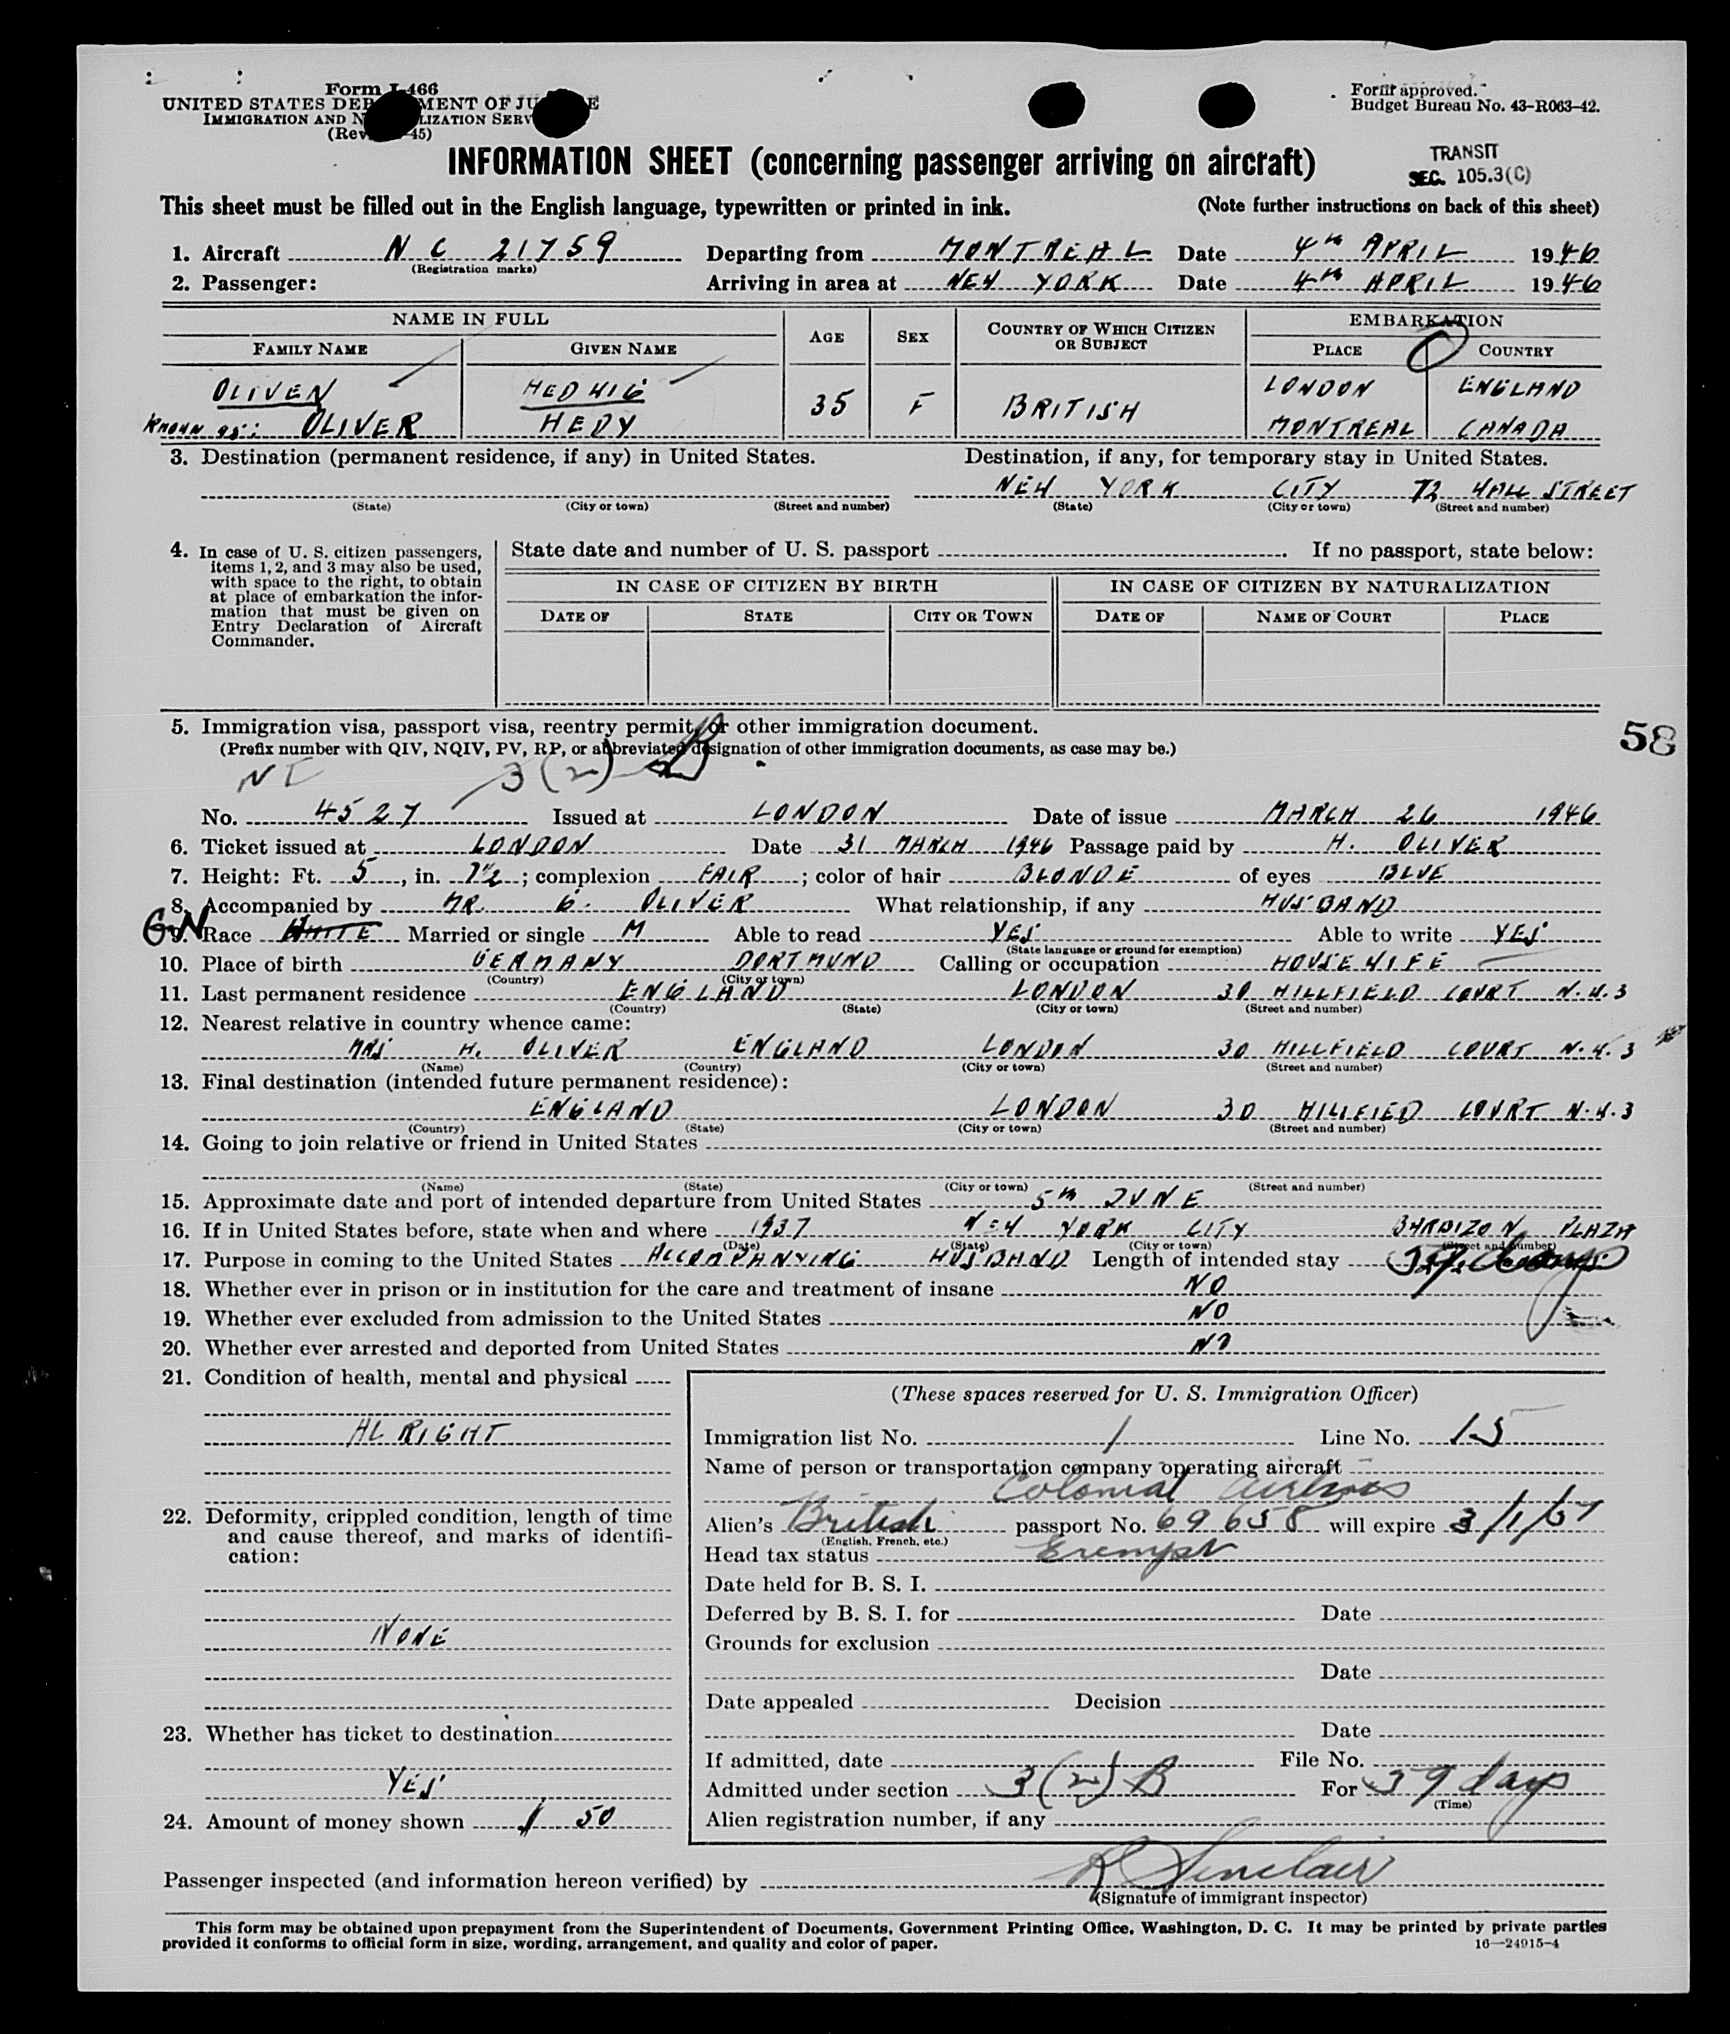 Form I-466
UNITED STATES DEPARTMENT OF JUSTICE
IMMIGRATION AND NATURALIZATION SERVICE
(Rev. 45)
Form approved.
Budget Bureau No. 43-R063-42.
INFORMATION SHEET (concerning passenger arriving on aircraft)
TRANSIT
SEC. 105.3(C)
This sheet must be filled out in the English language, typewritten or printed in ink. (Note further instructions on back of this sheet)
1. Aircraft NC 21759 Departing from MONTREAL Date 4th APRIL 1946
(Registration marks)
2. Passenger: Arriving in area at NEW YORK Date 4th APRIL 1946
NAME IN FULL AGE SEX COUNTRY OF WHICH CITIZEN OR SUBJECT EMBARKATION
FAMILY NAME GIVEN NAME PLACE COUNTRY
OLIVEN HEDWIG 35 F BRITISH LONDON ENGLAND
KNOWN AS: OLIVER HEDY MONTREAL CANADA
3. Destination (permanent residence, if any) in United States. Destination, if any, for temporary stay in United States.
NEW YORK CITY 72 WALL STREET
(State) (City or town) (Street and number) (State) (City or town) (Street and number)
4. In case of U. S. citizen passengers, items 1, 2, and 3 may also be used, with space to the right, to obtain at place of embarkation the information that must be given on Entry Declaration of Aircraft Commander.
State date and number of U. S. passport . If no passport, state below:
IN CASE OF CITIZEN BY BIRTH IN CASE OF CITIZEN BY NATURALIZATION
DATE OF STATE CITY OR TOWN DATE OF NAME OF COURT PLACE
5. Immigration visa, passport visa, reentry permit, or other immigration document.
58
(Prefix number with QIV, NQIV, PV, RP, or abbreviated designation of other immigration documents, as case may be.)
3(2) B
No. 4527 Issued at LONDON Date of issue MARCH 26 1946
6. Ticket issued at LONDON Date 31 MARCH 1946 Passage paid by H. OLIVER
7. Height: Ft. 5, in. 7½; complexion FAIR; color of hair BLONDE of eyes BLUE
8. Accompanied by MR. G. OLIVER What relationship, if any HUSBAND
9. Race WHITE Married or single M Able to read YES Able to write YES
(State language or ground for exemption)
10. Place of birth GERMANY DORTMUND Calling or occupation HOUSEWIFE
(Country) (City or town)
11. Last permanent residence ENGLAND LONDON 30 HILLFIELD COURT N.W.3
(Country) (State) (City or town) (Street and number)
12. Nearest relative in country whence came:
MRS H. OLIVER ENGLAND LONDON 30 HILLFIELD COURT N.W.3
(Name) (Country) (City or town) (Street and number)
13. Final destination (intended future permanent residence):
ENGLAND LONDON 30 HILLFIED COURT N.W.3
(Country) (State) (City or town) (Street and number)
14. Going to join relative or friend in United States
(Name) (State) (City or town) (Street and number)
15. Approximate date and port of intended departure from United States 5th JUNE
16. If in United States before, state when and where 1937 NEW YORK CITY BARBIZON PLAZA
(Date) (State) (City or town) (Street and number)
17. Purpose in coming to the United States ACCOMPANYING HUSBAND Length of intended stay
18. Whether ever in prison or in institution for the care and treatment of insane NO
19. Whether ever excluded from admission to the United States NO
20. Whether ever arrested and deported from United States NO
21. Condition of health, mental and physical
ALRIGHT
22. Deformity, crippled condition, length of time and cause thereof, and marks of identification:
NONE
23. Whether has ticket to destination
YES
24. Amount of money shown 50
(These spaces reserved for U. S. Immigration Officer)
Immigration list No. 1 Line No. 15
Name of person or transportation company operating aircraft
Colonial Airlines
Alien's British passport No. 69658 will expire
(English, French, etc.)
Head tax status Exempt
Date held for B. S. I.
Deferred by B. S. I. for Date
Grounds for exclusion
Date
Date appealed Decision
Date
If admitted, date File No.
Admitted under section 3(2)B For 39 days
(Time)
Alien registration number, if any
Passenger inspected (and information hereon verified) by R Sinclair
(Signature of immigrant inspector)
This form may be obtained upon prepayment from the Superintendent of Documents, Government Printing Office, Washington, D. C. It may be printed by private parties
provided it conforms to official form in size, wording, arrangement, and quality and color of paper. 16—24915-4